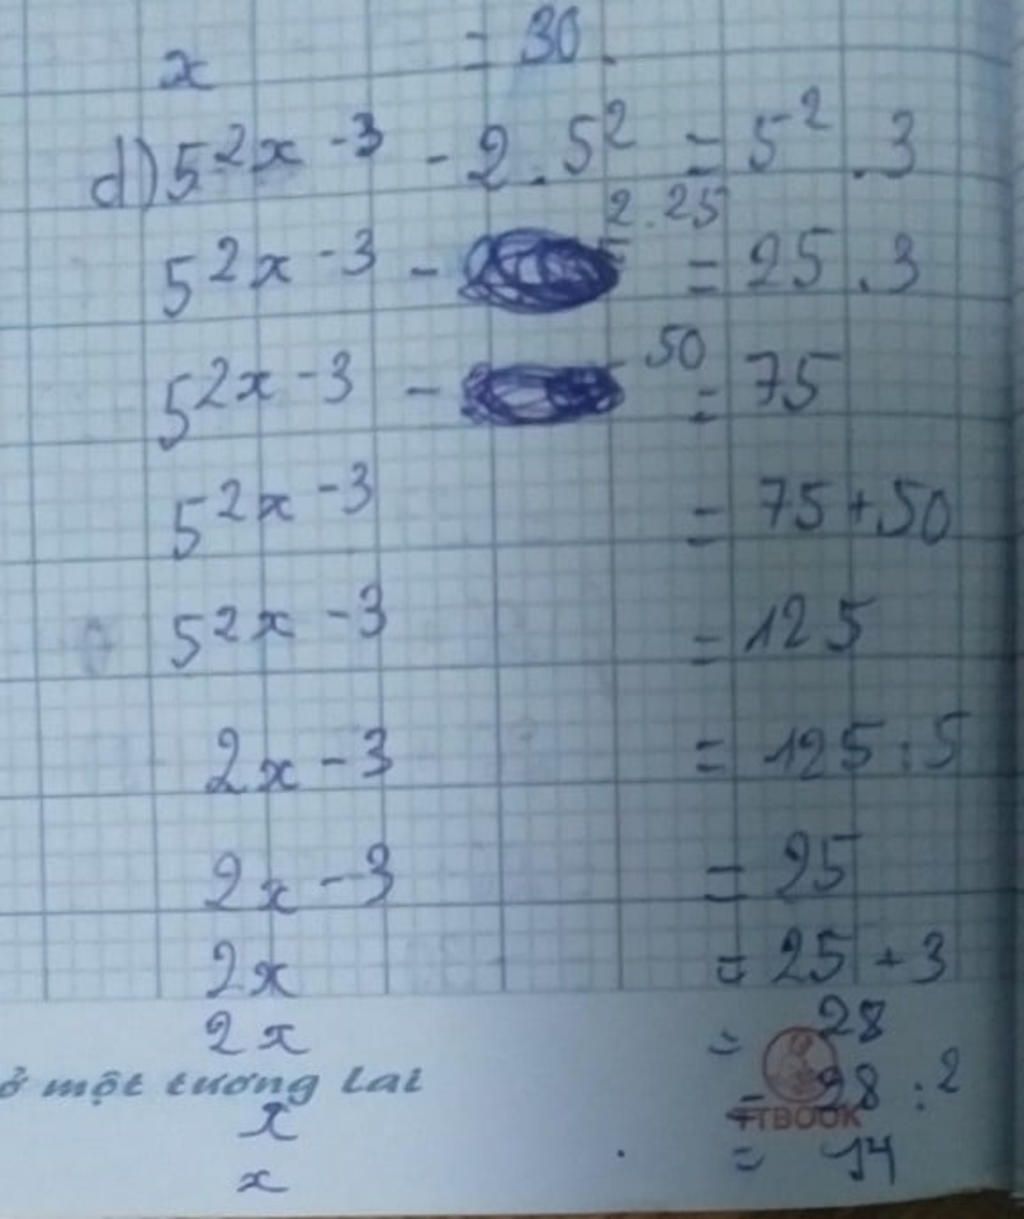 x = 30.
d) 5^{2x-3} - 2.5^2 = 5^2.3
5^{2x-3} - 2.25 = 25.3
5^{2x-3} - 50 = 75
5^{2x-3} = 75+50
5^{2x-3} = 125
2x-3 = 125:5
2x-3 = 25
2x = 25+3
2x = 28
ở một tương lai
x = 28:2
TTBOOK
x = 14